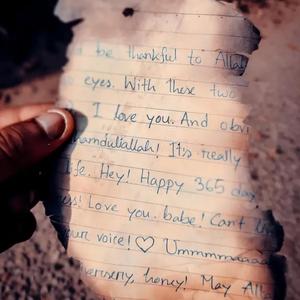 be thankful to Allah
eyes. With these two
I love you. And obvi
hamdulillah! It's really
life. Hey! Happy 365 day
ess! Love you babe! Can't
our voice! ♡ Ummmmaaaa
iversery, honey! May All